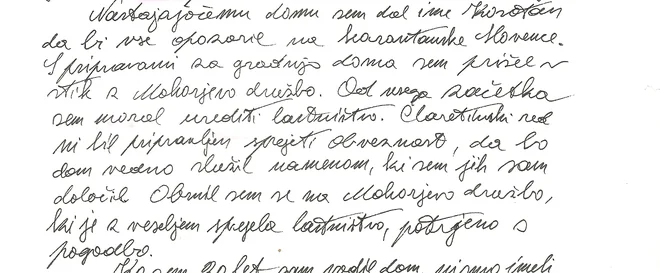 Nastajajočemu domu sem dal ime Korotan
da bi vse opozoril na karantanske Slovence.
S pripravami za gradnjo doma sem prišel v
stik z Mohorjevo družbo. Od vsega začetka
sem moral urediti lastništvo. Claretinski red
ni bil pripravljen sprejeti obveznost, da bo
dom vedno služil namenom, ki sem jih sam
določil. Obrnil sem se na Mohorjevo družbo,
ki je z veseljem sprejela lastništvo, potrjeno s
pogodbo.
Ko sem 20 let sam vodil dom, nismo imeli